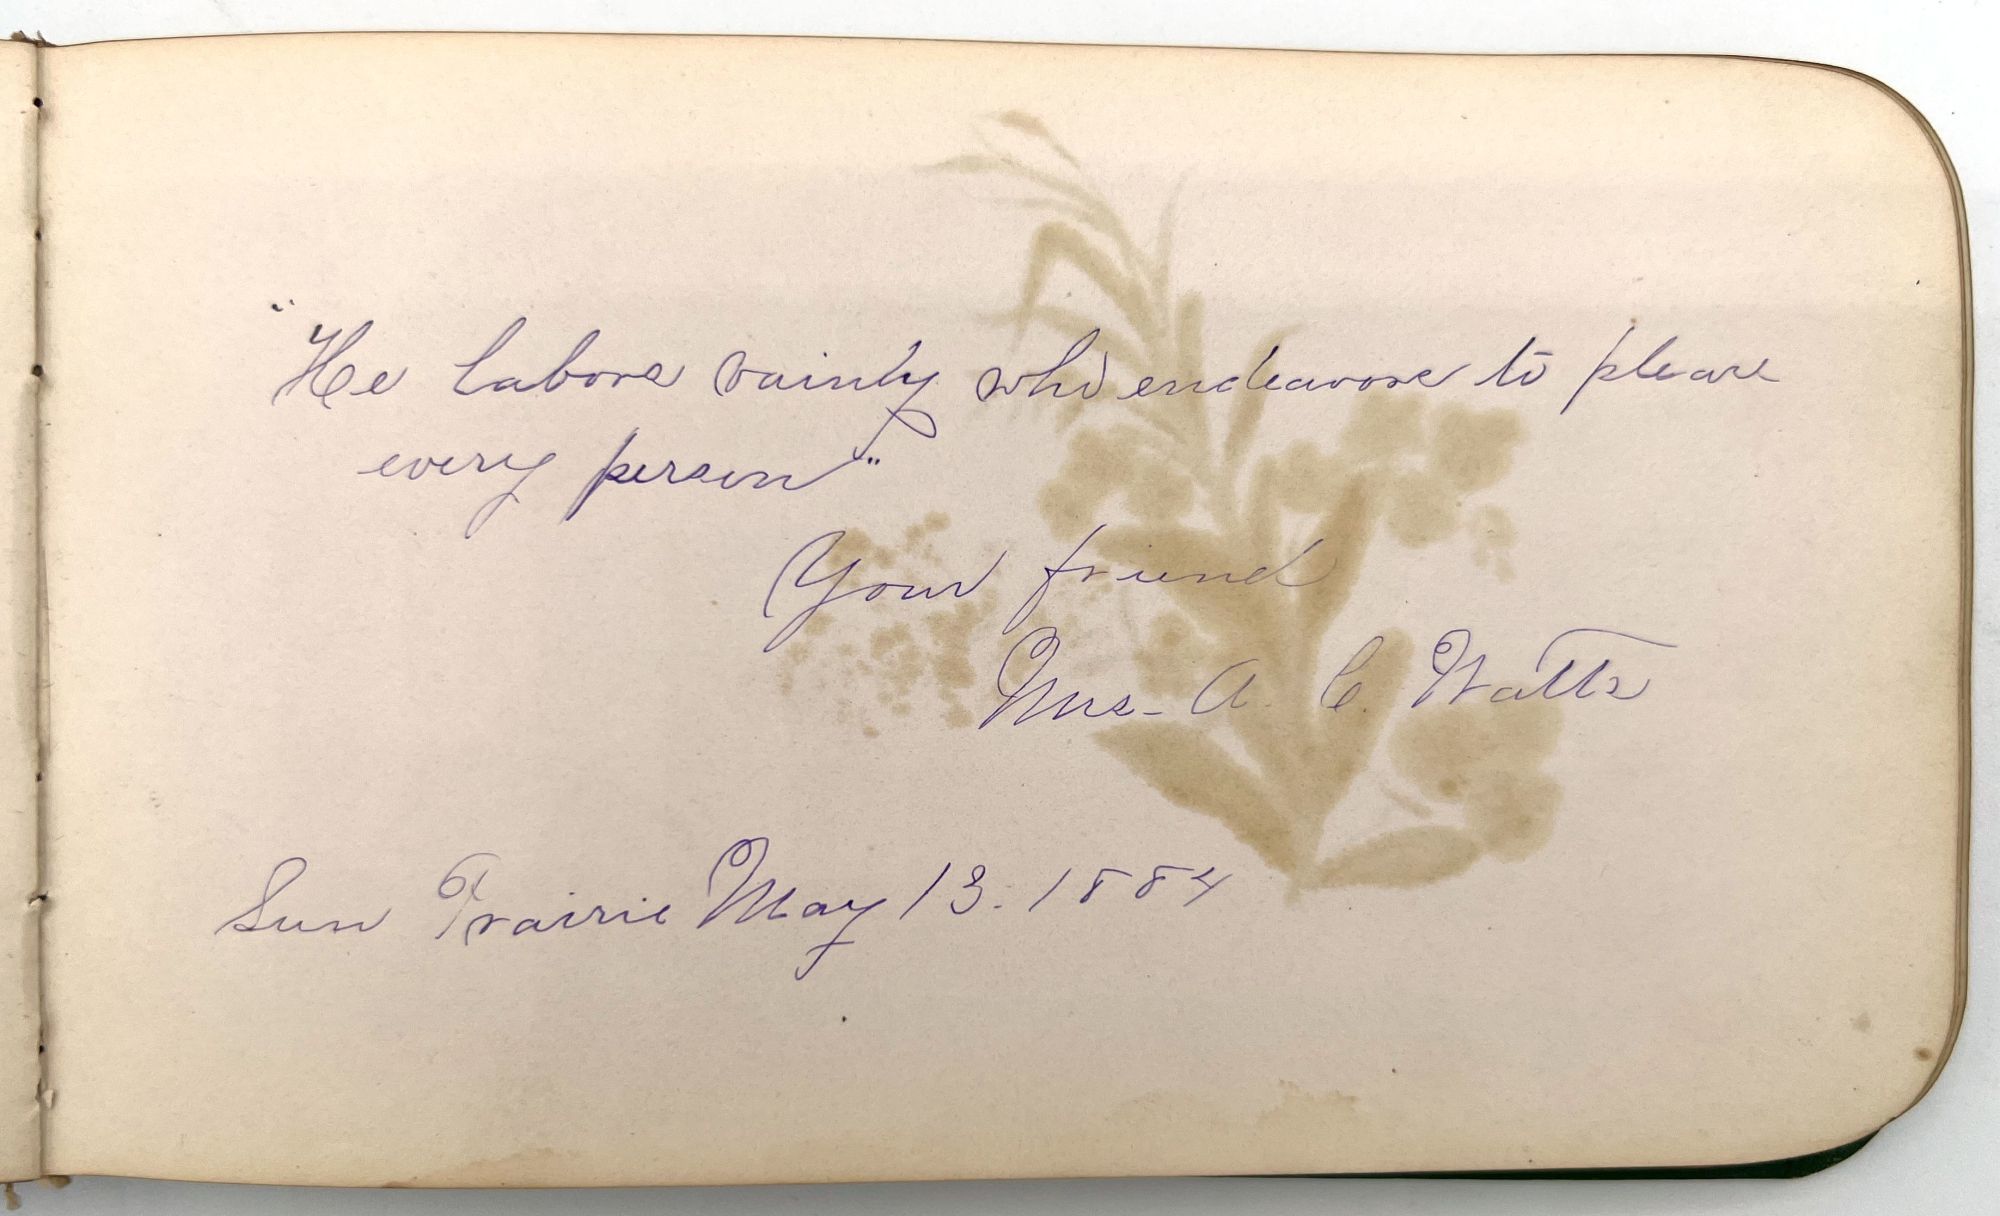 "He labors vainly who endeavors to please
every person"
Your friend
Mrs- A. C. Watts
Sun Prairie May 13. 1884